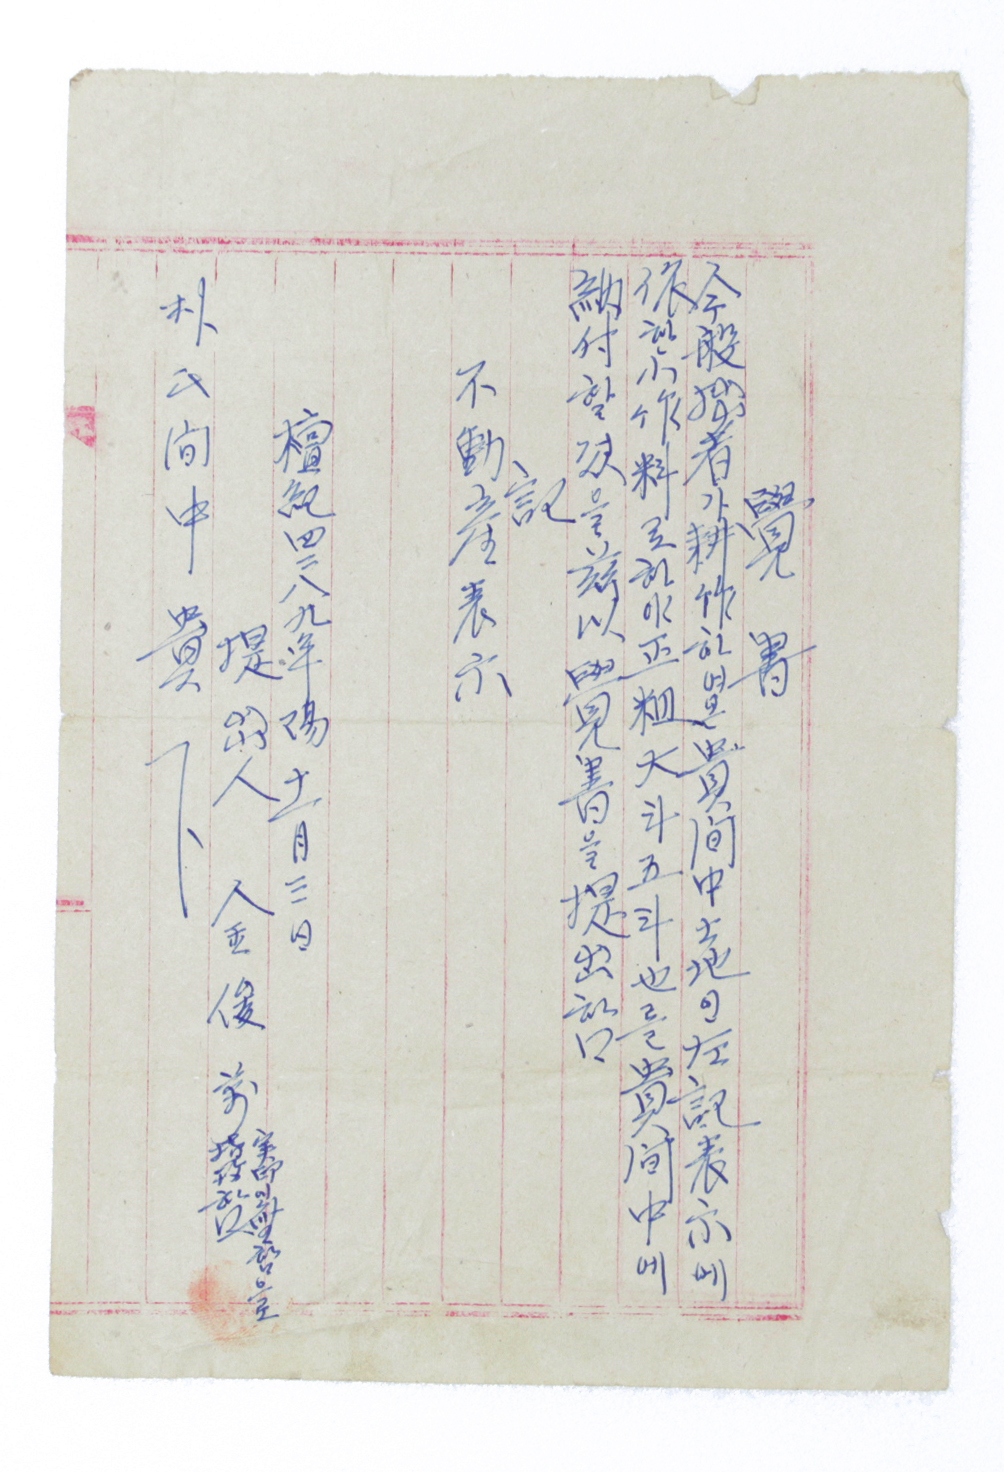 覺書
今般拙者가耕作하였든貴門中土地의左記表示에
依한小作料로하야正租大斗五斗也을貴門中에
納付할것을玆以覺書을提出함
記
不動産表示
檀紀四二八九年陽十一月三日
提出人 金俊
實印이無함으로
朴氏門中 貴下